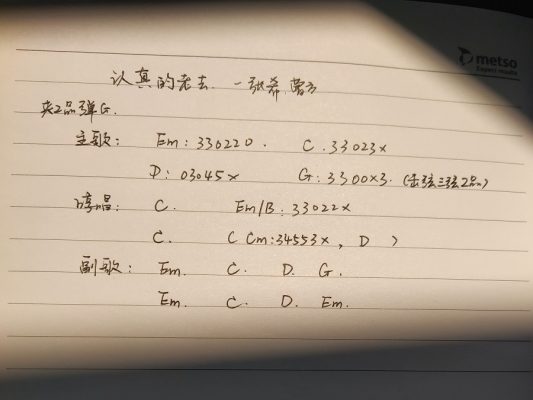 metso
Expert results
认真的老去. —张希 曹方
夹2品弹G.
主歌: Em: 330220. C. 33023x
D: 03045x G: 3300x3. (击弦三弦2品)
哼唱: C. Em/B: 33022x
C. C Cm: 34553x, D )
副歌: Em. C. D. G.
Em. C. D. Em.